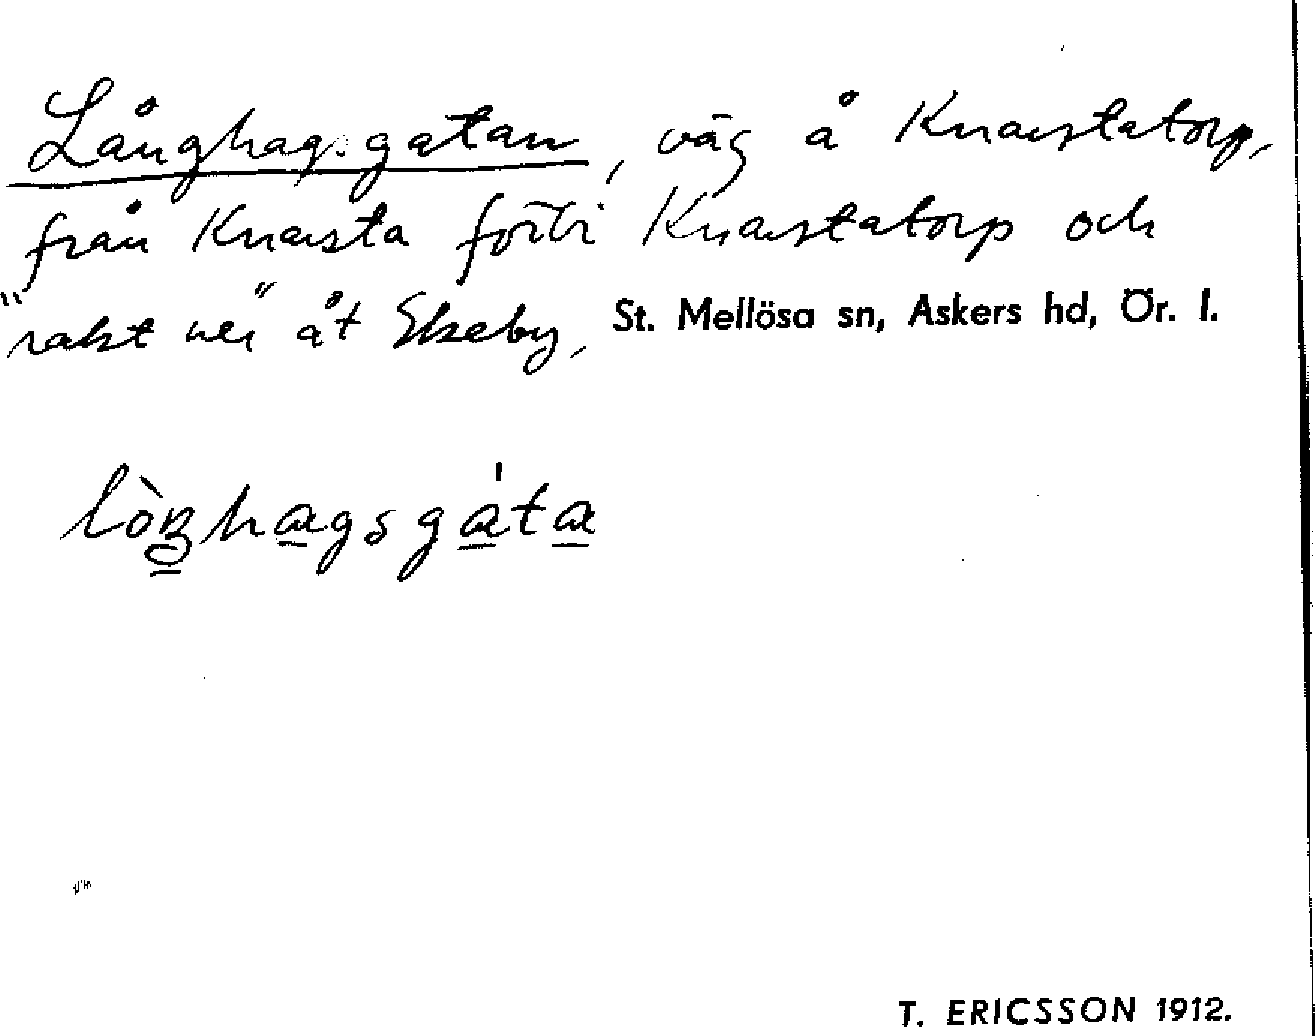 Långhagsgatan, väg å Knaistatorp,
från Knaista förbi Knaistatorp och
"rakt ner" åt Ekeby, St. Mellösa sn, Askers hd, Ör. l.
lòŋhagsgáta
T. ERICSSON 1912.